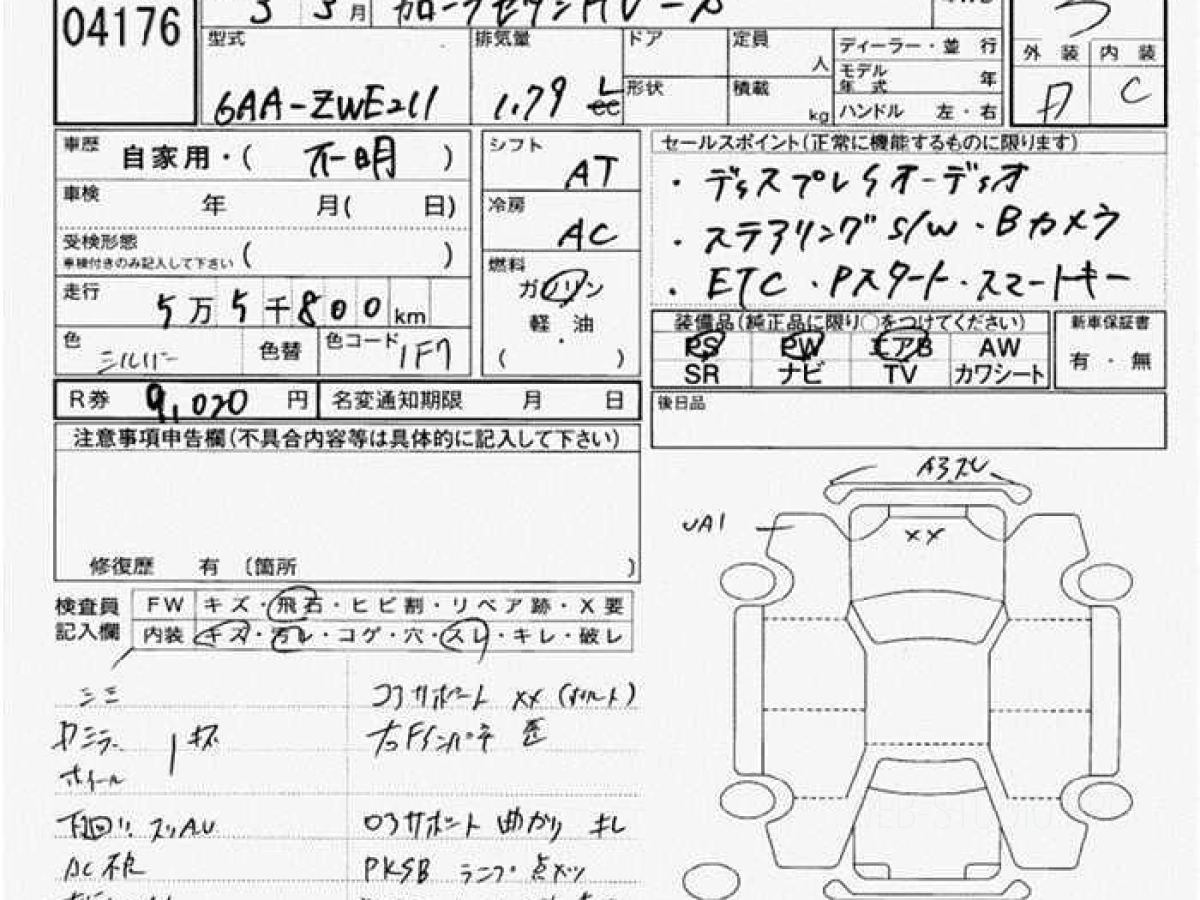 04176
3 3月 カローラセダンHV S
型式 排気量 ドア 定員 人 ディーラー・並 行
6AA-ZWE211 1.79 L cc 形状 積載 kg モデル年式 年
ハンドル 左・右
外装 内装
C
車歴 自家用・( 不明 )
車検 年 月( 日)
受検形態 車検付きのみ記入して下さい ( )
走行 5万5千800km
色 シルバー 色替 色コード 1F7
シフト AT
冷房 AC
燃料 ガソリン
軽 油
( )
セールスポイント(正常に機能するものに限ります)
・ディスプレイオーディオ
・ステアリングS/W・Bカメラ
・ETC・Pスタート・スマートキー
装備品(純正品に限り○をつけてください) 新車保証書
PS PW エアB AW 有・無
SR ナビ TV カワシート
R券 9,020 円 名変通知期限 月 日
後日品
注意事項申告欄(不具合内容等は具体的に記入して下さい)
修復歴 有 〔箇所 〕
検査員記入欄 FW キズ・飛石・ヒビ割・リペア跡・X要
内装 キズ・汚レ・コゲ・穴・スレ・キレ・破レ
コアサポート XX (ボルト)
右Fインパネ 歪
ホイール
下回リ スリ
コアサポート 曲がり キレ
AC不良
PKSB ランプ点メツ
A3 スレ
UA1
XX